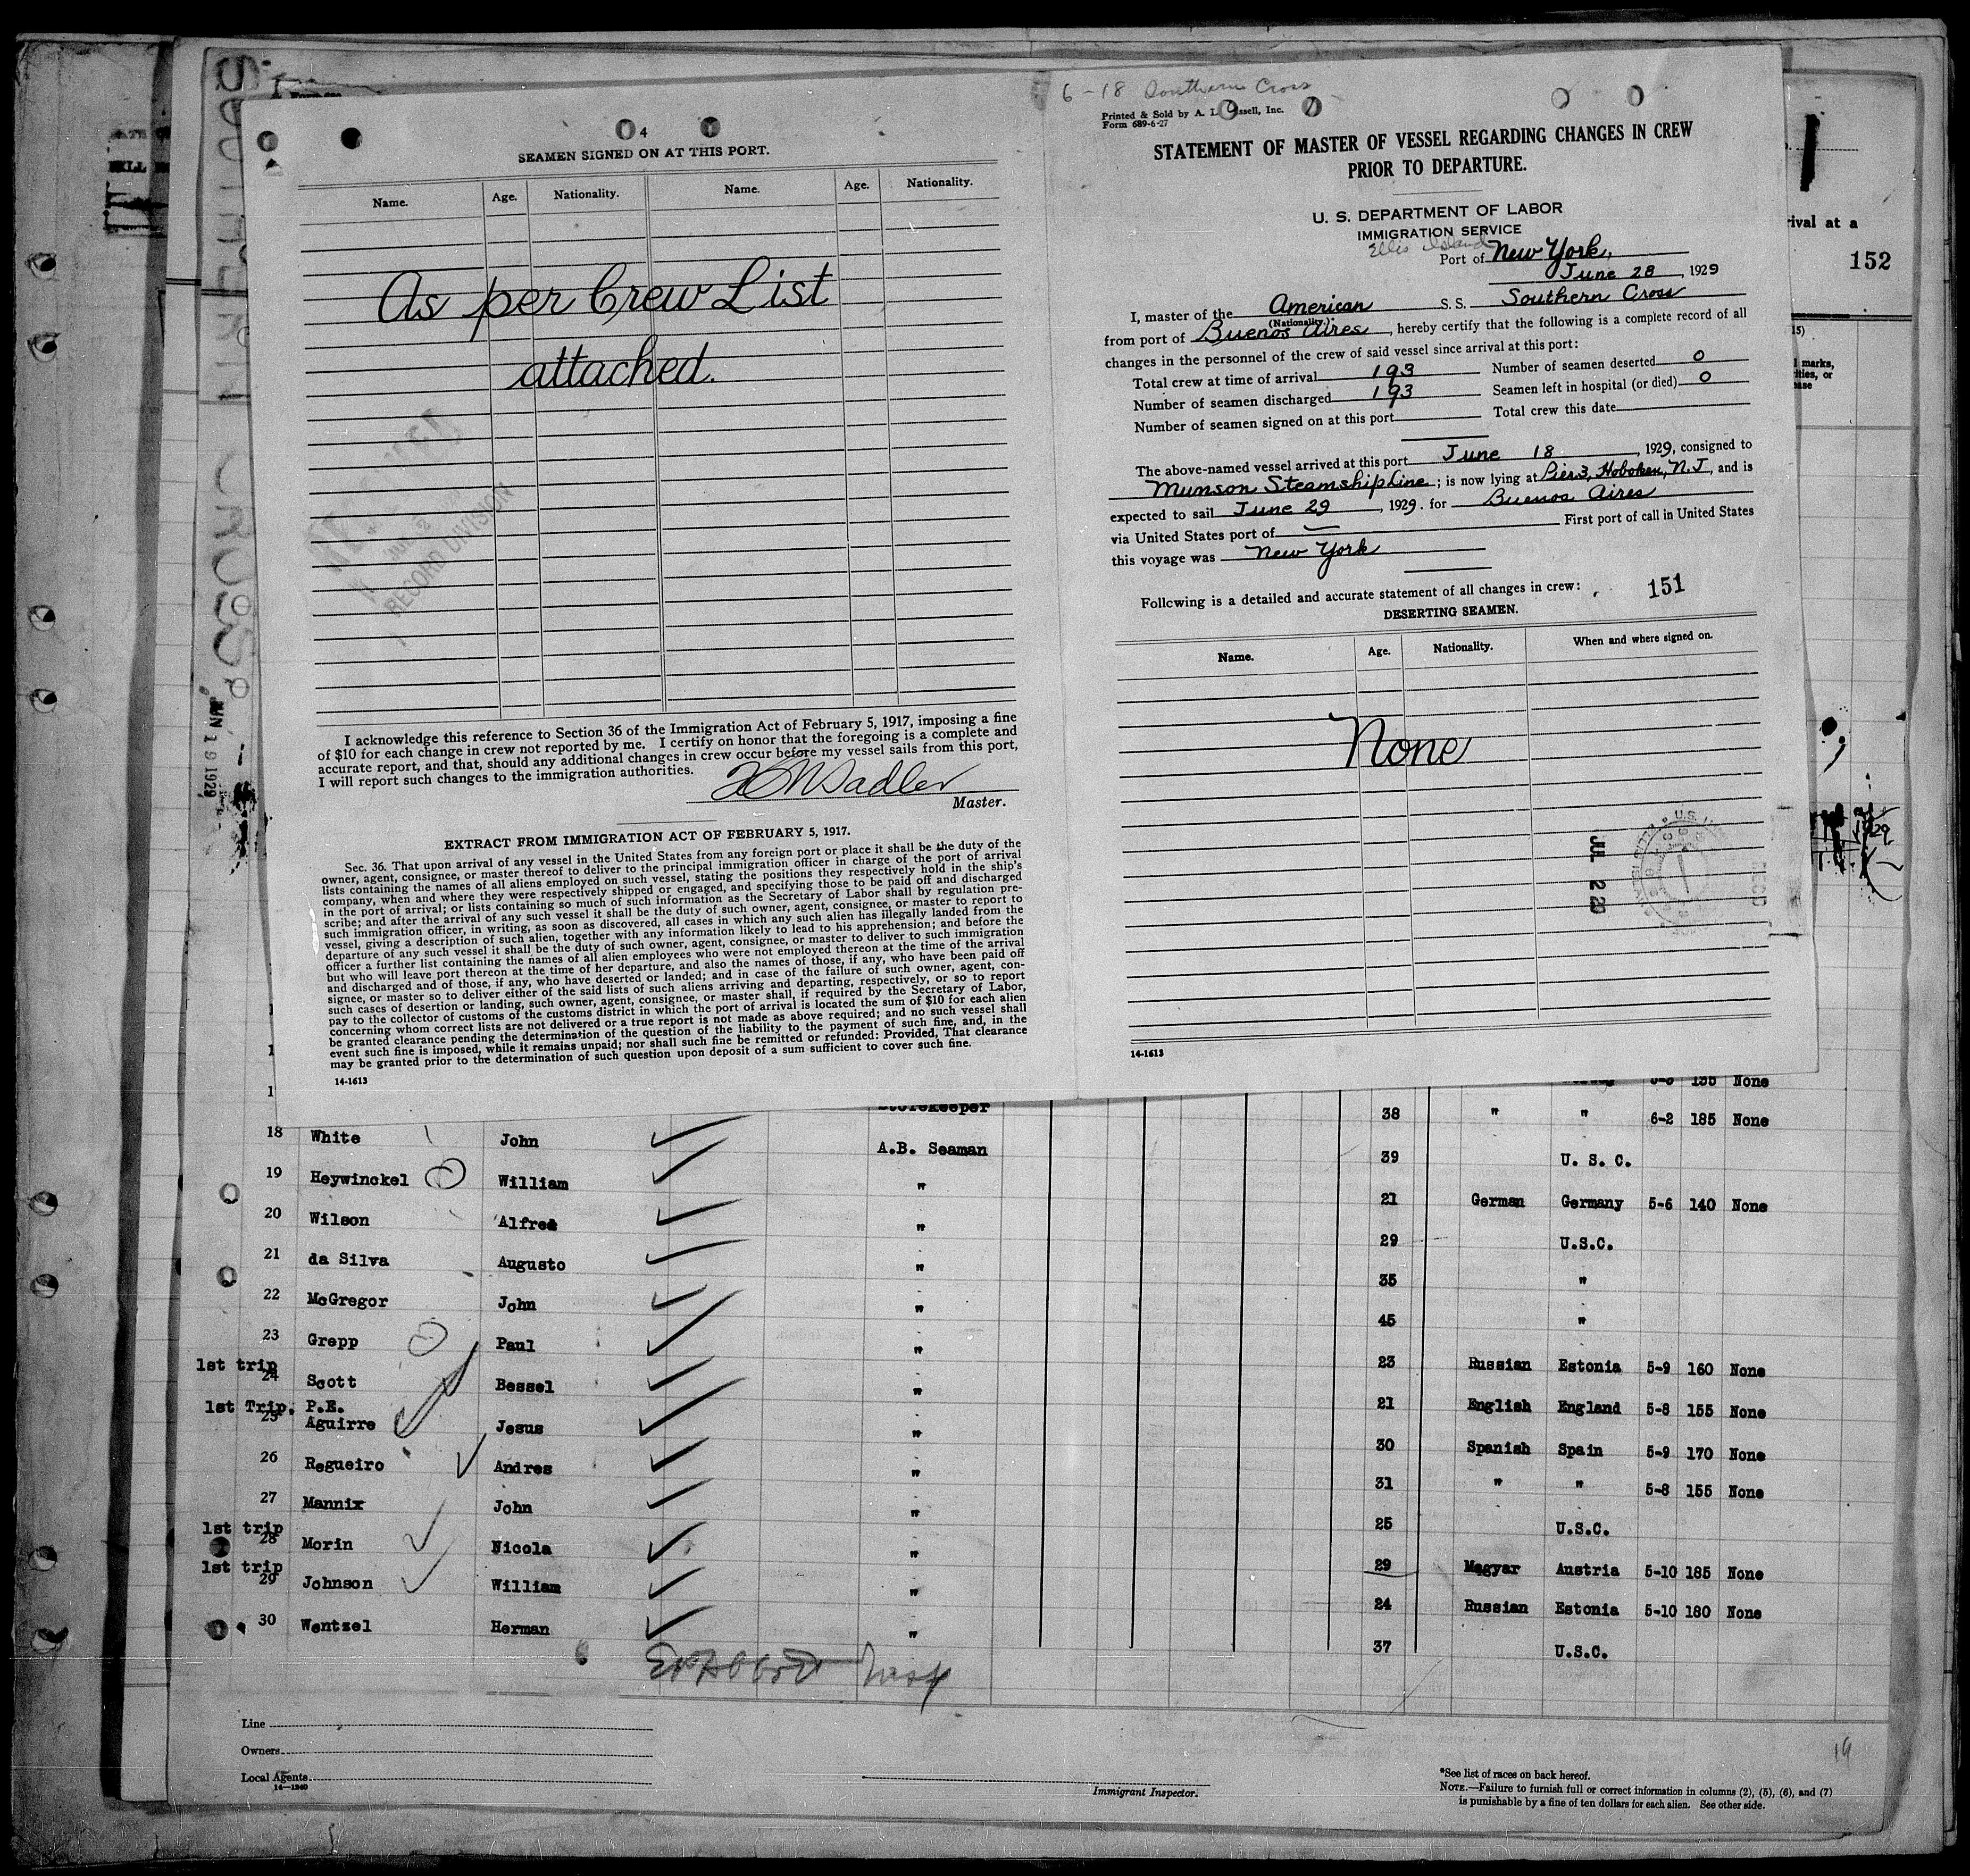 6-18 Southern Cross
4
SEAMEN SIGNED ON AT THIS PORT.
Name. Age. Nationality. Name. Age. Nationality.
As per Crew List
attached.
RECORD DIVISION
I acknowledge this reference to Section 36 of the Immigration Act of February 5, 1917, imposing a fine
of $10 for each change in crew not reported by me. I certify on honor that the foregoing is a complete and
accurate report, and that, should any additional changes in crew occur before my vessel sails from this port,
I will report such changes to the immigration authorities.
Sadler
Master.
EXTRACT FROM IMMIGRATION ACT OF FEBRUARY 5, 1917.
Sec. 36. That upon arrival of any vessel in the United States from any foreign port or place it shall be the duty of the
owner, agent, consignee, or master thereof to deliver to the principal immigration officer in charge of the port of arrival
lists containing the names of all aliens employed on such vessel, stating the positions they respectively hold in the ship's
company, when and where they were respectively shipped or engaged, and specifying those to be paid off and discharged
in the port of arrival; or lists containing so much of such information as the Secretary of Labor shall by regulation pre-
scribe; and after the arrival of any such vessel it shall be the duty of such owner, agent, consignee, or master to report to
such immigration officer, in writing, as soon as discovered, all cases in which any such alien has illegally landed from the
vessel, giving a description of such alien, together with any information likely to lead to his apprehension; and before the
departure of any such vessel it shall be the duty of such owner, agent, consignee, or master to deliver to such immigration
officer a further list containing the names of all alien employees who were not employed thereon at the time of the arrival
but who will leave port thereon at the time of her departure, and also the names of those, if any, who have been paid off
and discharged and of those, if any, who have deserted or landed; and in case of the failure of such owner, agent, con-
signee, or master so to deliver either of the said lists of such aliens arriving and departing, respectively, or so to report
such cases of desertion or landing, such owner, agent, consignee, or master shall, if required by the Secretary of Labor,
pay to the collector of customs of the customs district in which the port of arrival is located the sum of $10 for each alien
concerning whom correct lists are not delivered or a true report is not made as above required; and no such vessel shall
be granted clearance pending the determination of the question of the liability to the payment of such fine, and, in the
event such fine is imposed, while it remains unpaid; nor shall such fine be remitted or refunded: Provided, That clearance
may be granted prior to the determination of such question upon deposit of a sum sufficient to cover such fine.
14-1613
Printed & Sold by A. L. ssell, Inc.
Form 689-6-27
STATEMENT OF MASTER OF VESSEL REGARDING CHANGES IN CREW
PRIOR TO DEPARTURE.
U. S. DEPARTMENT OF LABOR
IMMIGRATION SERVICE
Ellis Island
Port of New York,
June 28, 1929
I, master of the American S. S. Southern Cross
(Nationality.)
from port of Buenos Aires, hereby certify that the following is a complete record of all
changes in the personnel of the crew of said vessel since arrival at this port:
Total crew at time of arrival 193 Number of seamen deserted 0
Number of seamen discharged 193 Seamen left in hospital (or died) 0
Number of seamen signed on at this port Total crew this date
The above-named vessel arrived at this port June 18, 1929, consigned to
Munson Steamship Line; is now lying at Pier 3, Hoboken, N.J., and is
expected to sail June 29, 1929. for Buenos Aires
via United States port of First port of call in United States
this voyage was New York
Following is a detailed and accurate statement of all changes in crew:
151
DESERTING SEAMEN.
Name. Age. Nationality. When and where signed on.
None
JUL 2 29
14-1613
SOUTHERN CROSS
JUN 19 1929
rival at a
152
15)
marks,
Storekeeper
5-8 155 None
38 " " 6-2 185 None
18 White John A.B. Seaman 39 U. S. C.
19 Heywinckel William " 21 German Germany 5-6 140 None
20 Wilson Alfred " 29 U.S.C.
21 da Silva Augusto " 35 "
22 McGregor John " 45 "
23 Grepp Paul " 23 Russian Estonia 5-9 160 None
1st trip
24 Scott Bessel " 21 English England 5-8 155 None
1st Trip. P.E.
25 Aguirre Jesus " 30 Spanish Spain 5-9 170 None
26 Regueiro Andres " 31 " " 5-8 155 None
27 Mannix John " 25 U.S.C.
1st trip
28 Morin Nicola " 29 Magyar Austria 5-10 185 None
1st trip
29 Johnson William " 24 Russian Estonia 5-10 180 None
30 Wentzel Herman " 37 U.S.C.
Line
Owners
Local Agents
14-1240
Immigrant Inspector.
19
*See list of races on back hereof.
NOTE.—Failure to furnish full or correct information in columns (2), (5), (6), and (7)
is punishable by a fine of ten dollars for each alien. See other side.